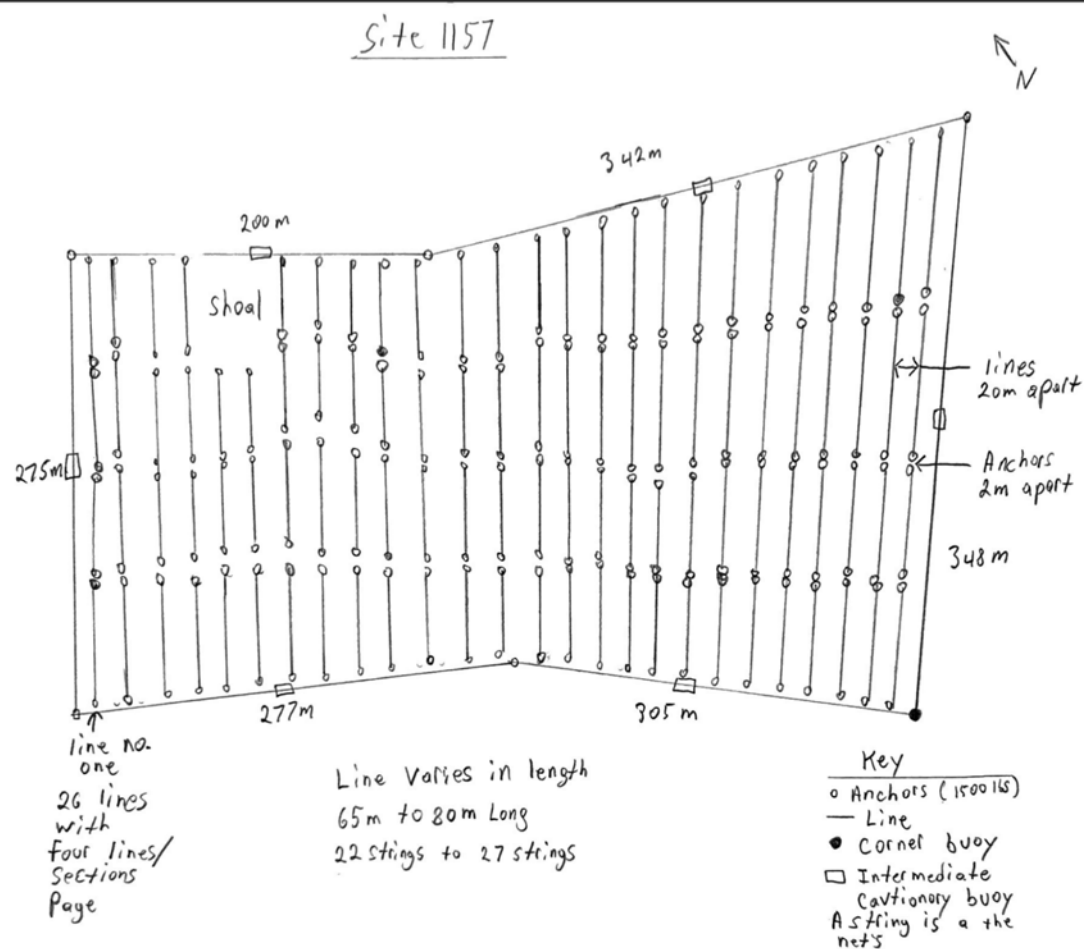 Site 1157
N
342m
200m
Shoal
lines
20m apart
275m
Anchors
2m apart
348m
277m
305m
line no.
one
26 lines
with
four lines/
Sections
Page
Line Varies in length
65m to 80m Long
22 strings to 27 strings
Key
Anchors (1500 lbs)
Line
Corner buoy
Intermediate
Cavtionory buoy
A string is a the
net's